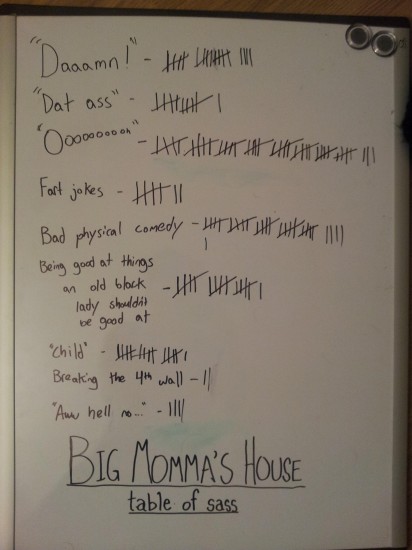 "Daaamn!" -
"Dat ass" -
"Oooooooooh" -
Fart jokes -
Bad physical comedy -
Being good at things
an old black
lady shouldn't
be good at -
"Child" -
Breaking the 4th wall -
"Aww hell no..." -
BIG MOMMA'S HOUSE
table of sass